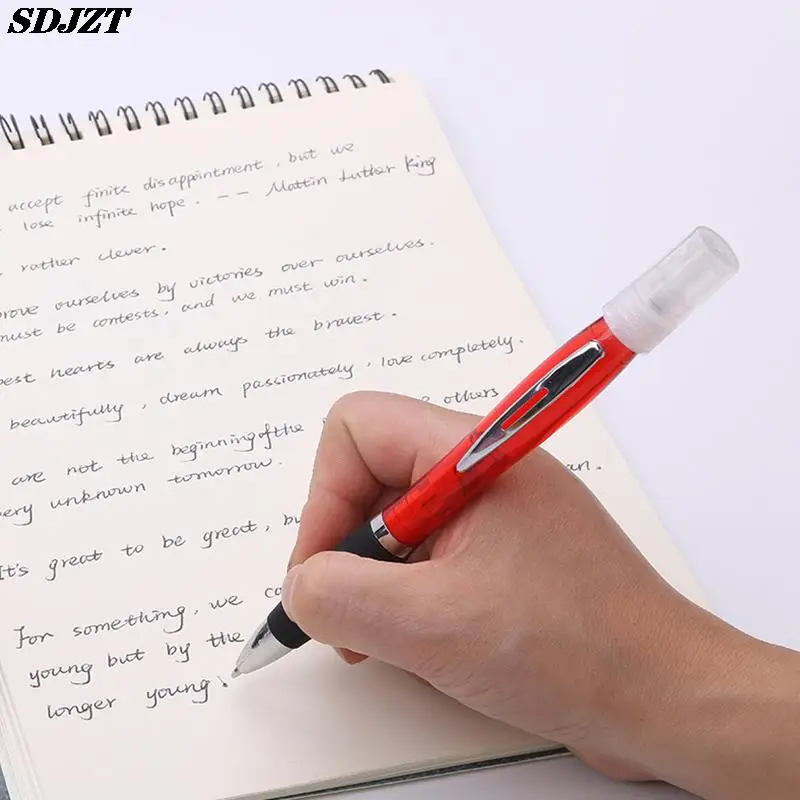 SDJZT
accept finite disappointment, but we
lose infinite hope. -- Mattin Luther King
rather clever.
prove ourselves by victories over ourselves.
must be contests, and we must win.
best hearts are always the bravest.
beautifully, dream passionately, love completely.
are not the beginning of the others
very unknown tomorrow. an.
It's great to be great, bu
For something, we ca
young but by the
longer young.